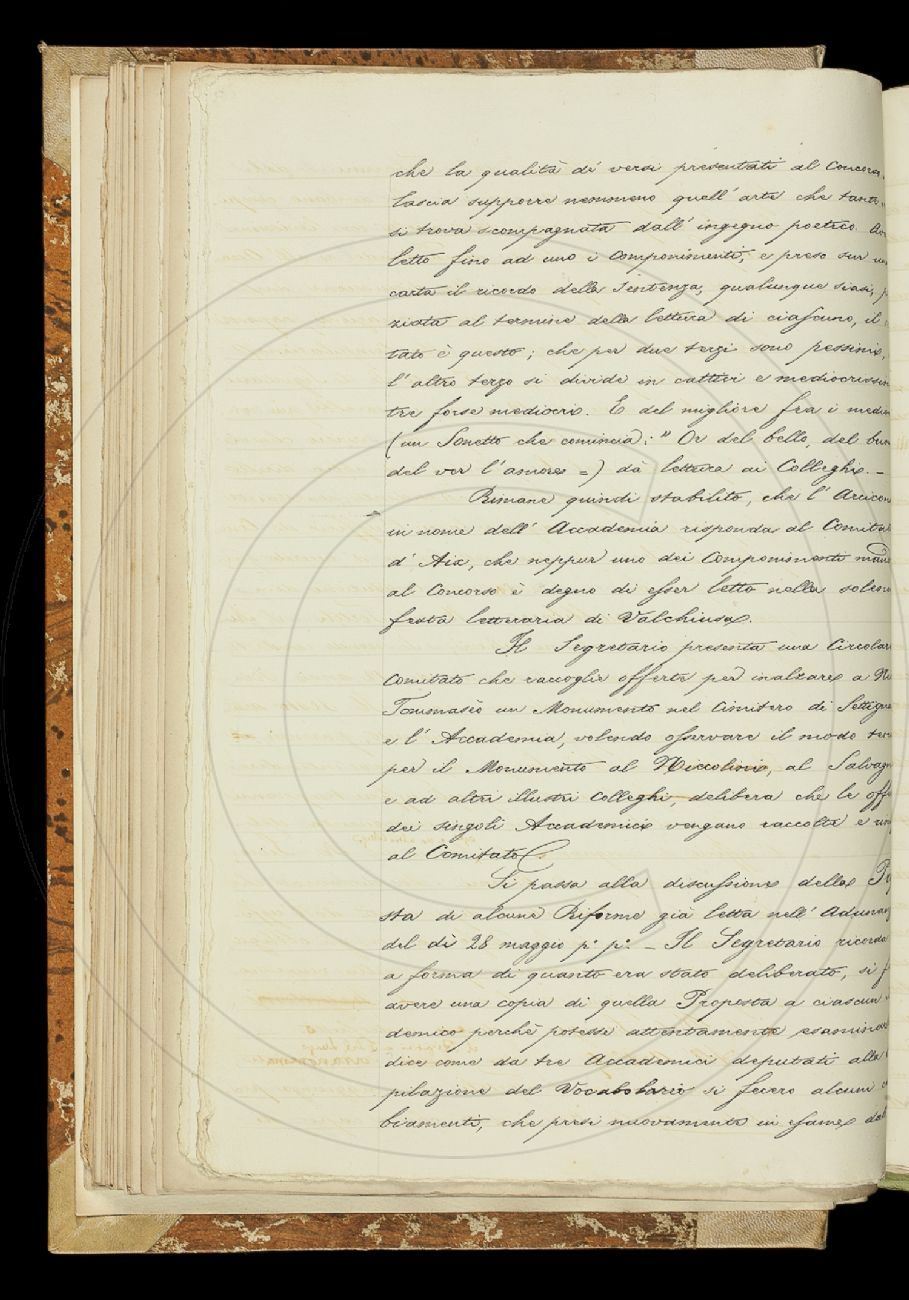 che la qualità de' versi presentati al Concor
lascia supporre nemmeno quell' arte che tant
si trova scompagnata dall' ingegno poetico.
letto fino ad uno i componimenti, e preso sur un
carta il ricordo della sentenza, qualunque siasi,
ziata al termine della lettura di ciascuno, il
tato è questo; che per due terzi sono pessimi,
l' altro terzo si divide in cattivi e mediocrissim
tre forse mediocri. E del migliore fra i medio
(un Sonetto che comincia: " Or del bello, del buo
del ver l' amore =) dà lettura ai Colleghi. -
Rimane quindi stabilito, che l' Arcicon
in nome dell' Accademia risponda al Comita
d' Aix, che neppur uno dei Componimenti man
al Concorso è degno di esser letto nella solenn
festa letteraria di Valchiusa.
Il Segretario presenta una Circolar
Comitato che raccoglie offerte per inalzare a Ni
Tommasèo un Monumento nel Cimitero di Settigna
e l' Accademia, volendo osservare il modo ten
per il Monumento al Niccolini, al Salvagn
e ad altri illustri Colleghi, delibera che le offe
dei singoli Accademici vengano raccolte e
al Comitato
Si passa alla discussione della Pro
sta di alcune Riforme già letta nell' Adunan
del dì 28 maggio p: p: - Il Segretario ricorda
a forma di quanto era stato deliberato, si f
avere una copia di quella Proposta a ciascun
demico perchè potesse attentamente esaminar
dice come da tre Accademici deputati alla
pilazione del Vocabolario si fecero alcuni
biamenti, che presi nuovamente in esame dal